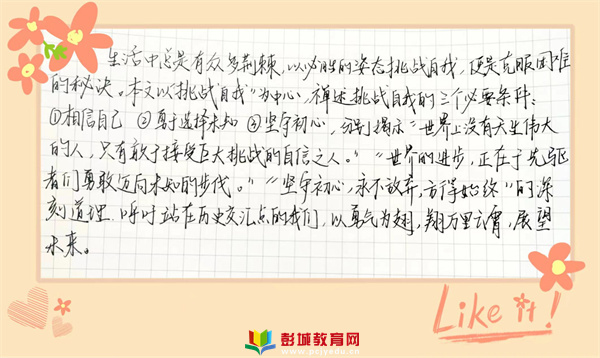 生活中总是有众多荆棘，以必胜的姿态挑战自我，便是克服困难
的秘诀。本文以“挑战自我”为中心，阐述挑战自我的三个必要条件：
①相信自己 ②勇于选择未知 ③坚守初心，分别揭示“世界上没有天生伟大
的人，只有敢于接受巨大挑战的自信之人。”“世界的进步，正在于先驱
者们勇敢迈向未知的步伐。”“坚守初心，永不放弃，方得始终”的深
刻道理，呼吁站在历史交汇点的我们，以勇气为翅，翔万里云霄，展望
未来。
Like it!
彭城教育网
www.pcjyedu.cn